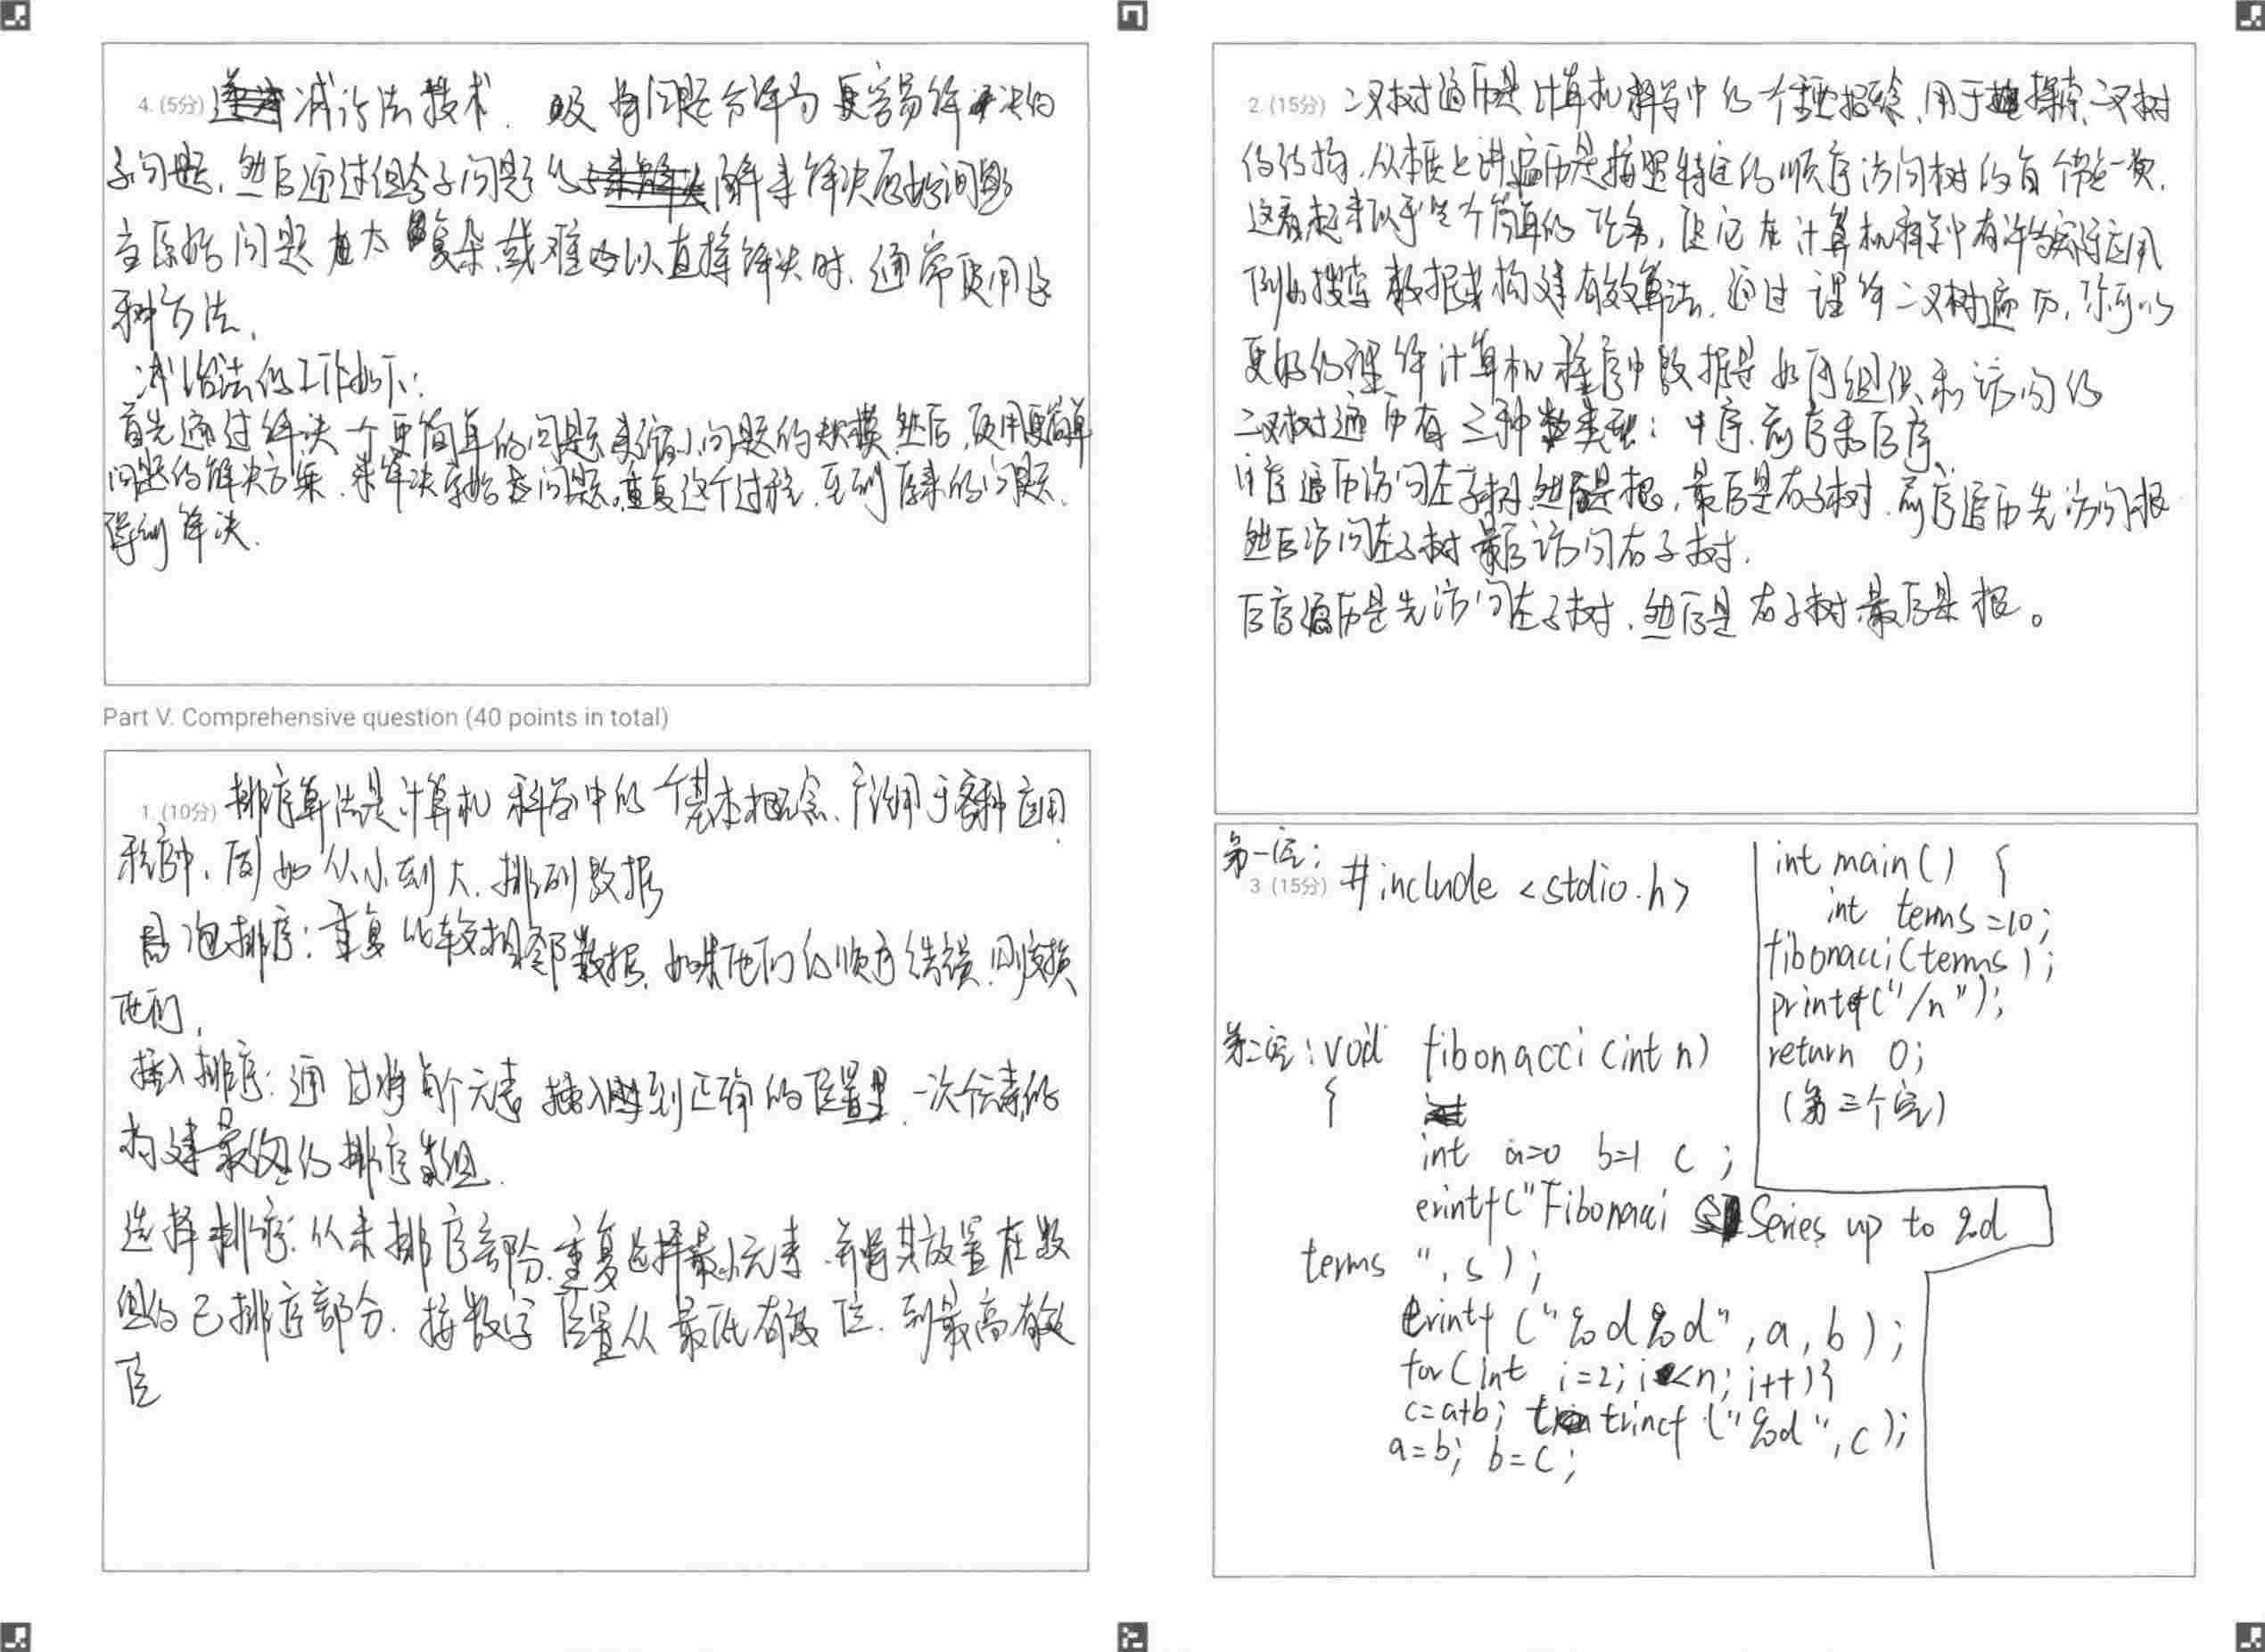 4. (5分) 减治法技术. 将问题分解为更容易解决的
子问题, 然后通过组合子问题的解来解决原始问题
当原始问题太大复杂或难以直接解决时. 通常使用这
种方法.
减治法的工作如下:
首先通过解决一个更简单的问题来缩小问题的规模 然后, 使用更简单
问题的解决方案. 来解决原始问题。重复这个过程, 直到原来的问题.
得到解决.
Part V. Comprehensive question (40 points in total)
1. (10分) 排序算法是计算机科学中的一个基本概念、广泛用于各种应用
程序中. 例如从小到大. 排列数据
冒泡排序: 重复比较相邻数据. 如果它们的顺序错误. 则交换
它们.
插入排序: 通过将每个元素插入到正确的位置里. 一次一个元素的
构建最终的排序数组.
选择排序: 从未排序部分. 重复选择最小元素. 并将其放置在数
组的已排序部分. 按数字位置从最低有效位. 到最高有效
位
2. (15分) 二叉树遍历是计算机科学中的一个重要概念, 用于探索二叉树
的结构. 从本质上讲遍历是按照特定的顺序访问树的每个节点一次.
这看起来似乎是个简单的任务, 但它在计算机科学中有许多实际应用
例如搜索数据或构建有效算法. 通过理解二叉树遍历, 你可以
更好的理解计算机程序中数据是如何组织和访问的
二叉树遍历有三种类型: 中序、前序和后序、
中序遍历访问左子树 然后是根, 最后是右子树. 前序遍历先访问根
然后访问左子树 最后访问右子树.
后序遍历是先访问左子树. 然后是右子树. 最后是根。
第一空:
3 (15分) #include <stdio.h>
第二空: void fibonacci (int n)
{
int a=0 b=1 c ;
erintf("Fibonacci Series up to %d
terms ", s );
erintf ("%d%d", a, b );
for (int i=2; i<n; i++){
c=a+b; trinct ("%d", c );
a=b; b=c;
int main() {
int terms=10;
fibonacci(terms);
printf("/n");
return 0;
(第三个空)